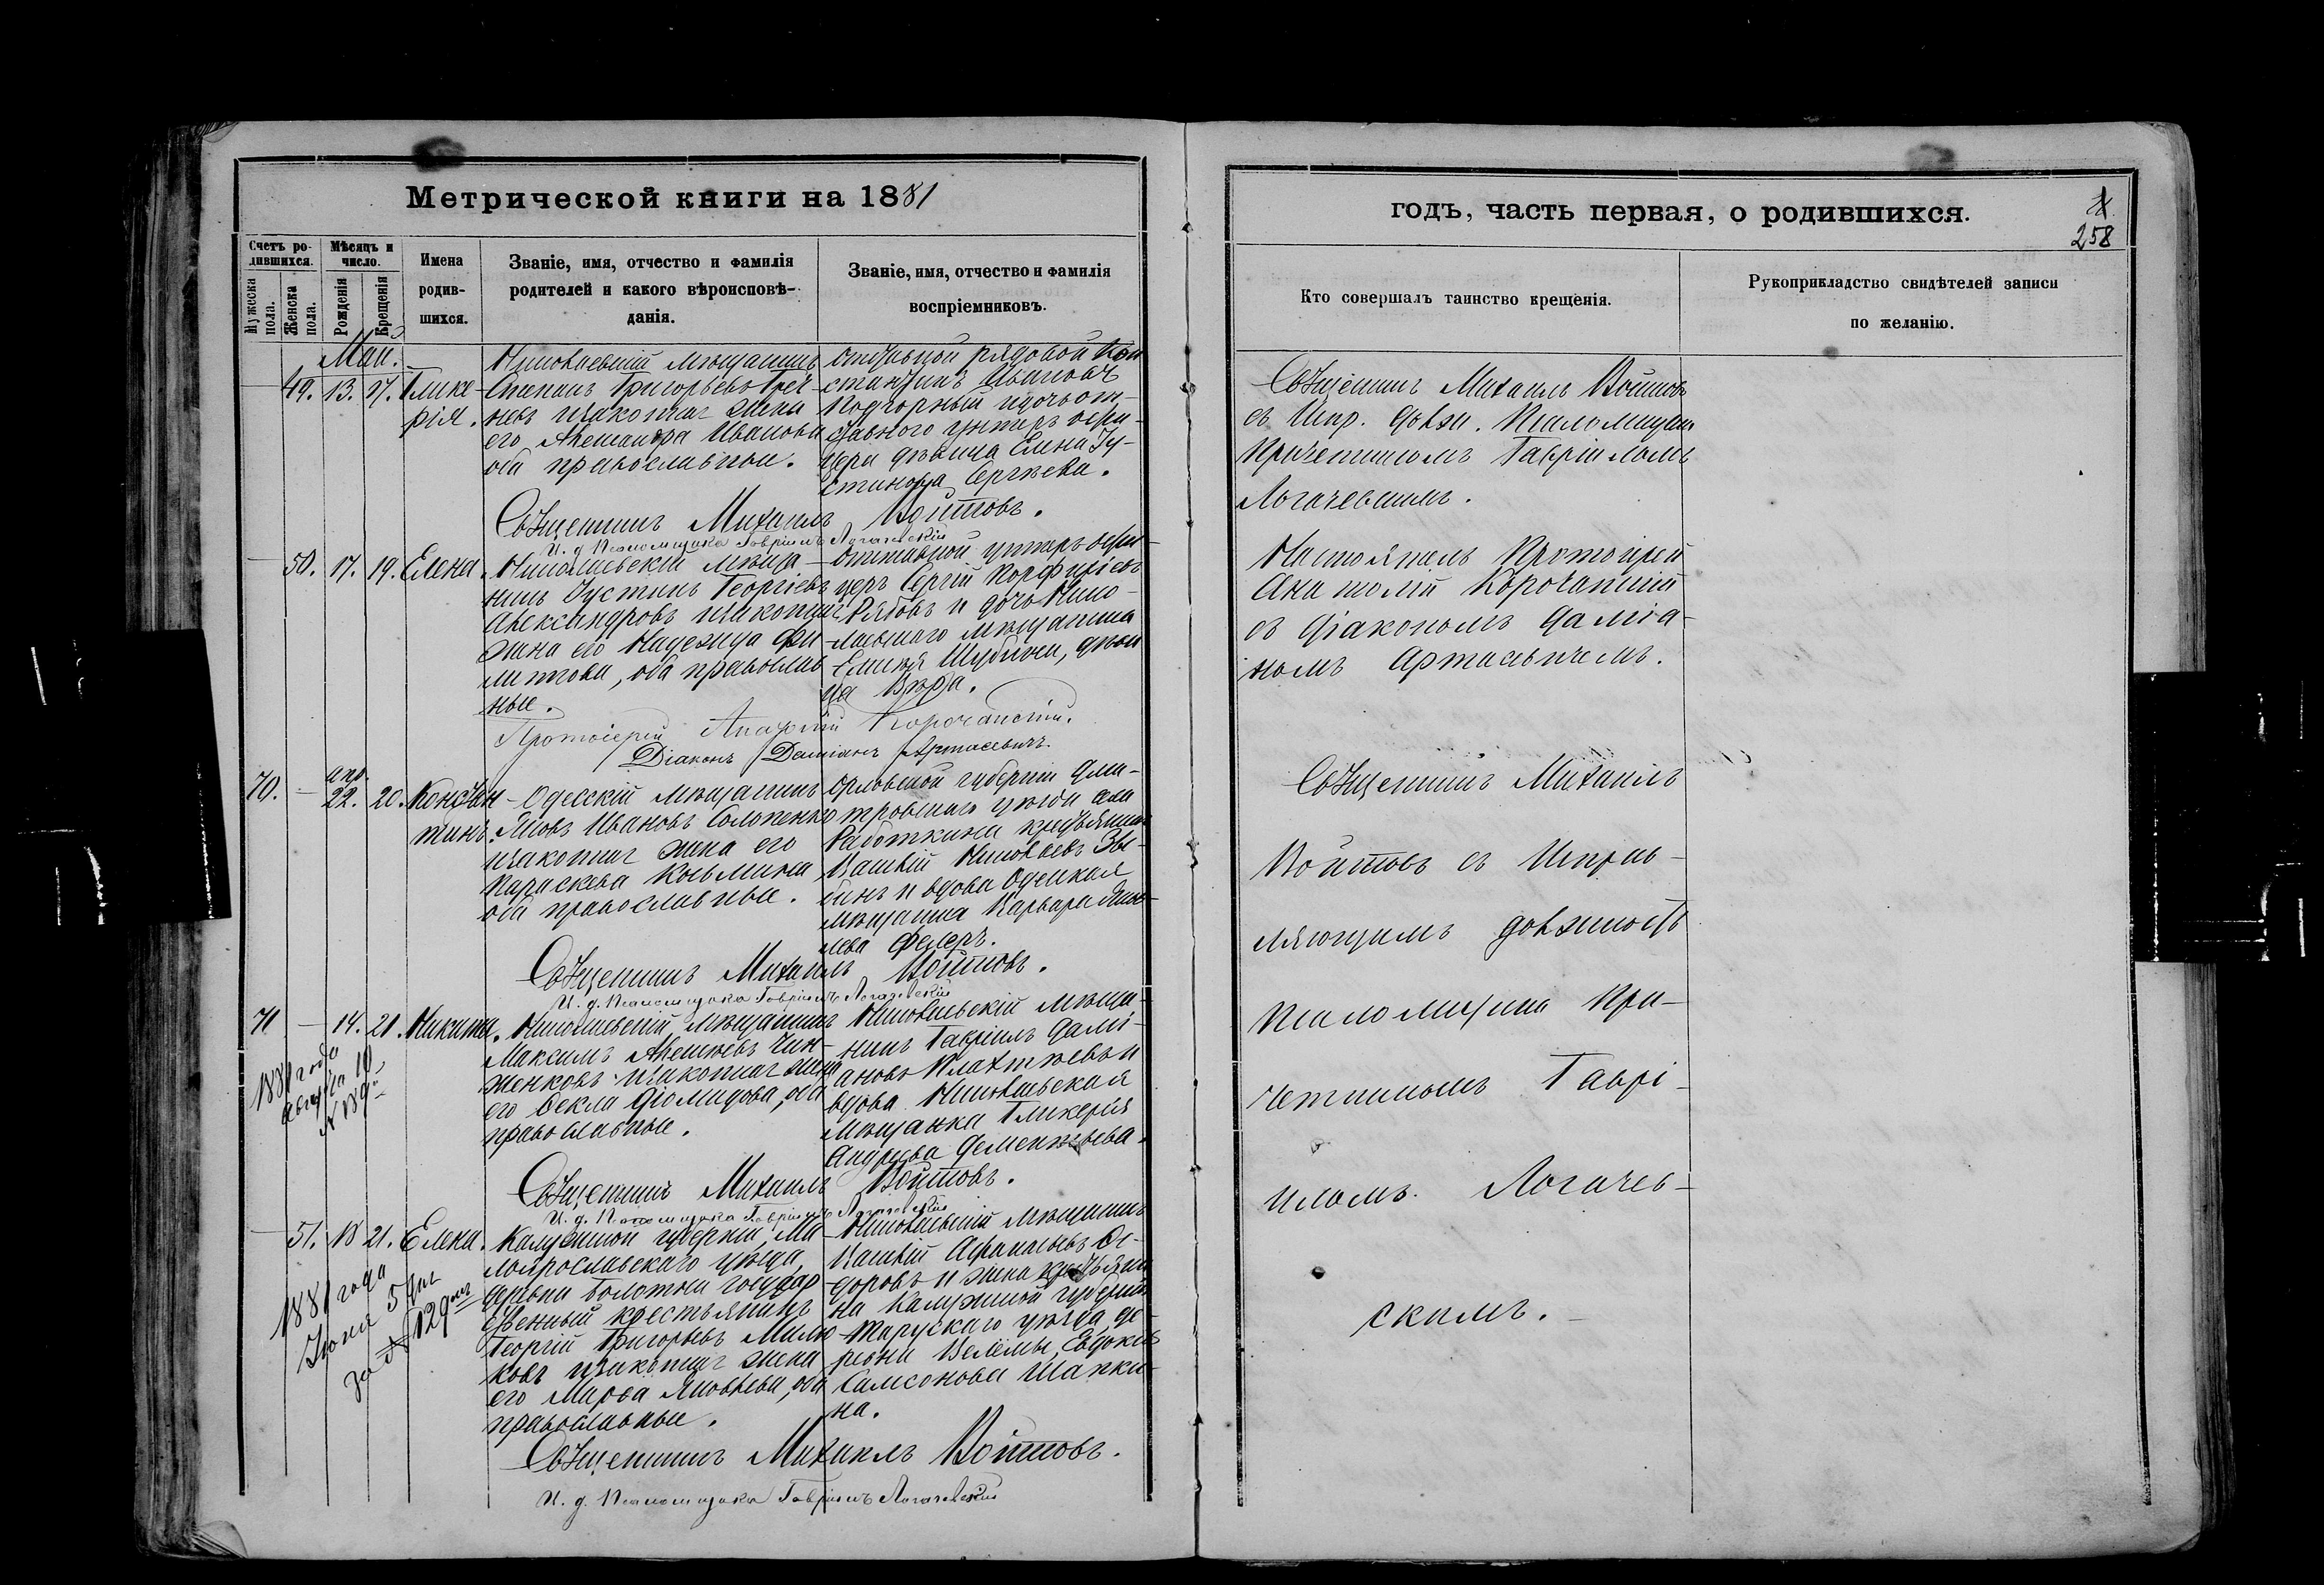 Метрической книги на 1881
Счетъ ро-
дившихся.
Мужеска
пола.
Женска
пола.
Мѣсяцъ и
число.
Рожденія
Крещенія
Имена
родив-
шихся.
Званіе, имя, отчество и фамилія
родителей и какого вѣроисповѣ-
данія.
Званіе, имя, отчество и фамилія
воспріемниковъ.
Маи.
49. 13. 17. Глике-
рія.
Николаевскій мѣщанинъ
Степанъ Григорьевъ
невъ и законная жена
его Александра Иванова
оба православные.
Отставной рядовой Кон
стантинъ Ивановъ
Подгорный и дочь от-
ставного унтеръ офи-
цера дѣвица Елена Іу-
стинова Сергѣева.
Священникъ Михаилъ Войтовъ.
И. д. Псаломщика Гавріилъ Логачевскій
50. 17. 19. Елена.
Николаевскій мѣща-
нинъ Іустинъ Георгіевъ
Александровъ и законная
жена его Надежда Фи-
липпова, оба православ
ные.
Отставной унтеръ офи-
церъ Сергій Порфиріевъ
Рябовъ и дочь Нико-
лаевскаго мѣщанина
дѣви
ца Вѣра.
Протоіерей Анатолій Корочанскій.
Діаконъ Даміанъ Артасевичъ.
70. — апр. 22. 20. Констан-
тинъ.
Одесскій мѣщанинъ
Яковъ Ивановъ Солопенко
и законная жена его
Параскева Косьмина
оба православные.
Орловской губерніи Дми-
тровскаго уѣзда села
Работкина крестьянинъ
Василій Николаевъ
и вдова Одесская
мѣщанка Варвара Яков-
лева
Священникъ Михаилъ Войтовъ.
И. д. Псаломщика Гавріилъ Логачевскій
71 — 14. 21. Никита.
1881 года
Августа 10
№ 189
Николаевскій мѣщанинъ
Максимъ Алексѣевъ
женковъ и законная жена
его Ѳекла Діомидова, оба
православные.
Николаевскій мѣща-
нинъ Гавріилъ Дамі-
ановъ и
вдова Николаевская
мѣщанка Гликерія
Андреева Дементьева.
Священникъ Михаилъ Войтовъ.
И. д. Псаломщика Гавріилъ Логачевскій
51. 18 21. Елена.
1881 года
Іюня 5 дня
за № 129
Калужской губерніи, Ма-
лоярославскаго уѣзда,
деревни государ-
ственный крестьянинъ
Георгій Григорьевъ
ковъ и законная жена
его Марѳа Яковлева, оба
православные.
Николаевскій мѣщанинъ
Василій Аѳанасьевъ Ѳе-
доровъ и жена крестьяни
на Калужской губерніи
Тарускаго уѣзда, де-
ревни Евдокія
Самсонова Шапки-
на.
Священникъ Михаилъ Войтовъ.
И. д. Псаломщика Гавріилъ Логачевскій
годъ, часть первая, о родившихся.
258
Кто совершалъ таинство крещенія.
Рукоприкладство свидѣтелей записи
по желанію.
Священникъ Михаилъ Войтовъ
съ Испр. долж. Псаломщика
Причетникомъ Гавріиломъ
Логачевскимъ.
Настоятель Протоіерей
Анатолій Корочанскій
съ Діакономъ Даміа-
номъ Артасевичемъ.
Священникъ Михаилъ
Войтовъ съ Исправ-
ляющимъ должность
Псаломщика При-
четникомъ Гаврі-
иломъ Логачев-
скимъ.